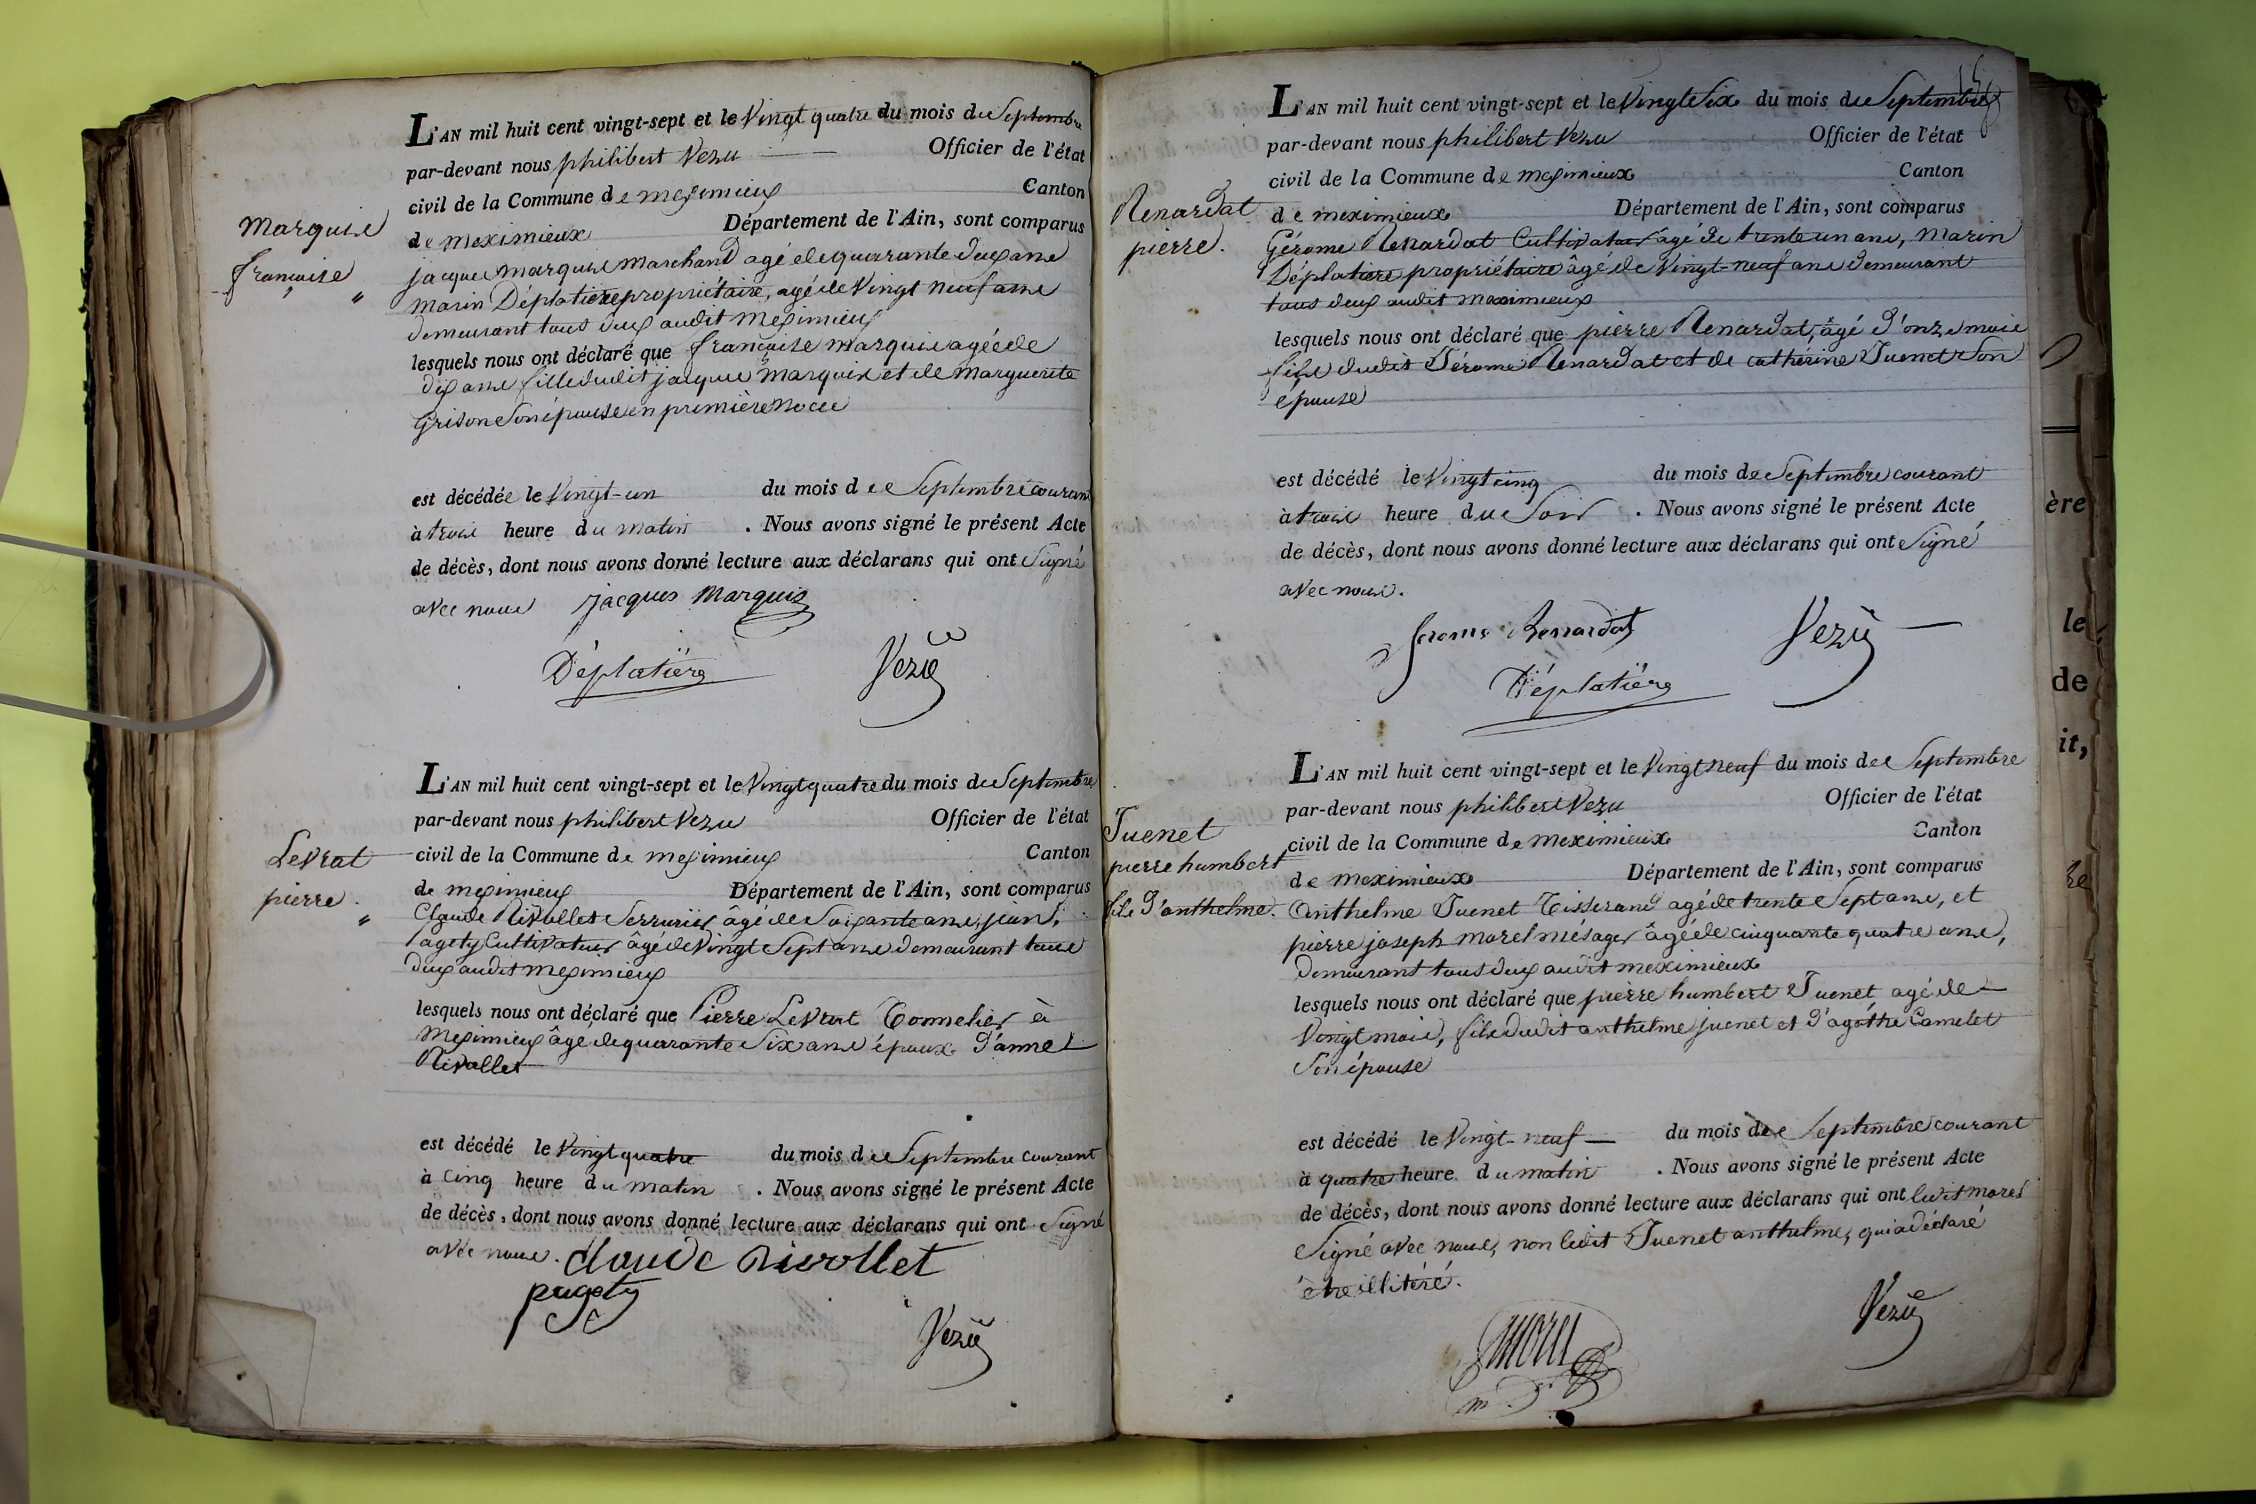 Marquis
françoise
L'AN mil huit cent vingt-sept et le Vingt quatre du mois de Septembre
par-devant nous philibert Vezu Officier de l'état
civil de la Commune de meximieux Canton
de meximieux Département de l'Ain, sont comparus
jacques marquis marchand agé de quarante deux ans
marin Déplatière propriétaire, agé de Vingt neuf ans
demeurant tous deux audit meximieux
lesquels nous ont déclaré que françoise marquis agée de
dix ans fille dudit jacques marquis et de marguerite
Grison Son épouse en première noces
est décédée le Vingt-un du mois de Septembre courant
à trois heure du matin . Nous avons signé le présent Acte
de décès, dont nous avons donné lecture aux déclarans qui ont Signé
avec nous jacques marquis
Déplatière Vezu
Levrat
pierre.
L'AN mil huit cent vingt-sept et le Vingt quatre du mois de Septembre
par-devant nous philibert Vezu Officier de l'état
civil de la Commune de meximieux Canton
de meximieux Département de l'Ain, sont comparus
Claude Rivollet Serrurier âgé de Soixante ans, jean
pagety Cultivateur âgé de Vingt Sept ans demeurant tous
deux audit meximieux
lesquels nous ont déclaré que Pierre Levrat Tonnelier à
Meximieux âgé de quarante Six ans époux d'anne
Rivollet
est décédé le Vingt quatre du mois de Septembre courant
à Cinq heure du matin . Nous avons signé le présent Acte
de décès, dont nous avons donné lecture aux déclarans qui ont Signé
avec nous. claude Rivollet
pagety
Vezu
Renardat
pierre.
L'AN mil huit cent vingt-sept et le Vingt Six du mois de Septembre
par-devant nous philibert Vezu Officier de l'état
civil de la Commune de meximieux Canton
de meximieux Département de l'Ain, sont comparus
Gérome Renardat Cultivateur âgé de trente un ans, Marin
Déplatiere propriétaire âgé de Vingt-neuf ans demeurant
tous deux audit meximieux
lesquels nous ont déclaré que pierre Renardat, âgé d'onze mois
fils dudit Jérome Renardat et de cathérine Juenet Son
épouse
est décédé le Vingt cinq du mois de Septembre courant
à trois heure du Soir . Nous avons signé le présent Acte
de décès, dont nous avons donné lecture aux déclarans qui ont Signé
avec nous.
Jerome Renardat Vezu
Déplatière
Juenet
pierre humbert
fils d'anthelme.
L'AN mil huit cent vingt-sept et le Vingt neuf du mois de Septembre
par-devant nous philibert Vezu Officier de l'état
civil de la Commune de meximieux Canton
de meximieux Département de l'Ain, sont comparus
Anthelme Juenet Tisserand agé de trente Sept ans, et
pierre joseph morel mésager âgé de cinquante quatre ans,
demeurant tous deux audit meximieux
lesquels nous ont déclaré que pierre humbert Juenet agé de
Vingt mois, fils dudit anthelme juenet et d'agathe Camelet
Son épouse
est décédé le Vingt-neuf du mois de Septembre courant
à quatre heure du matin . Nous avons signé le présent Acte
de décès, dont nous avons donné lecture aux déclarans qui ont ledit morel
Signé avec nous, non ledit Juenet anthelme, qui a déclaré
être illitéré.
Vezu
morel
ère
le
de
it,